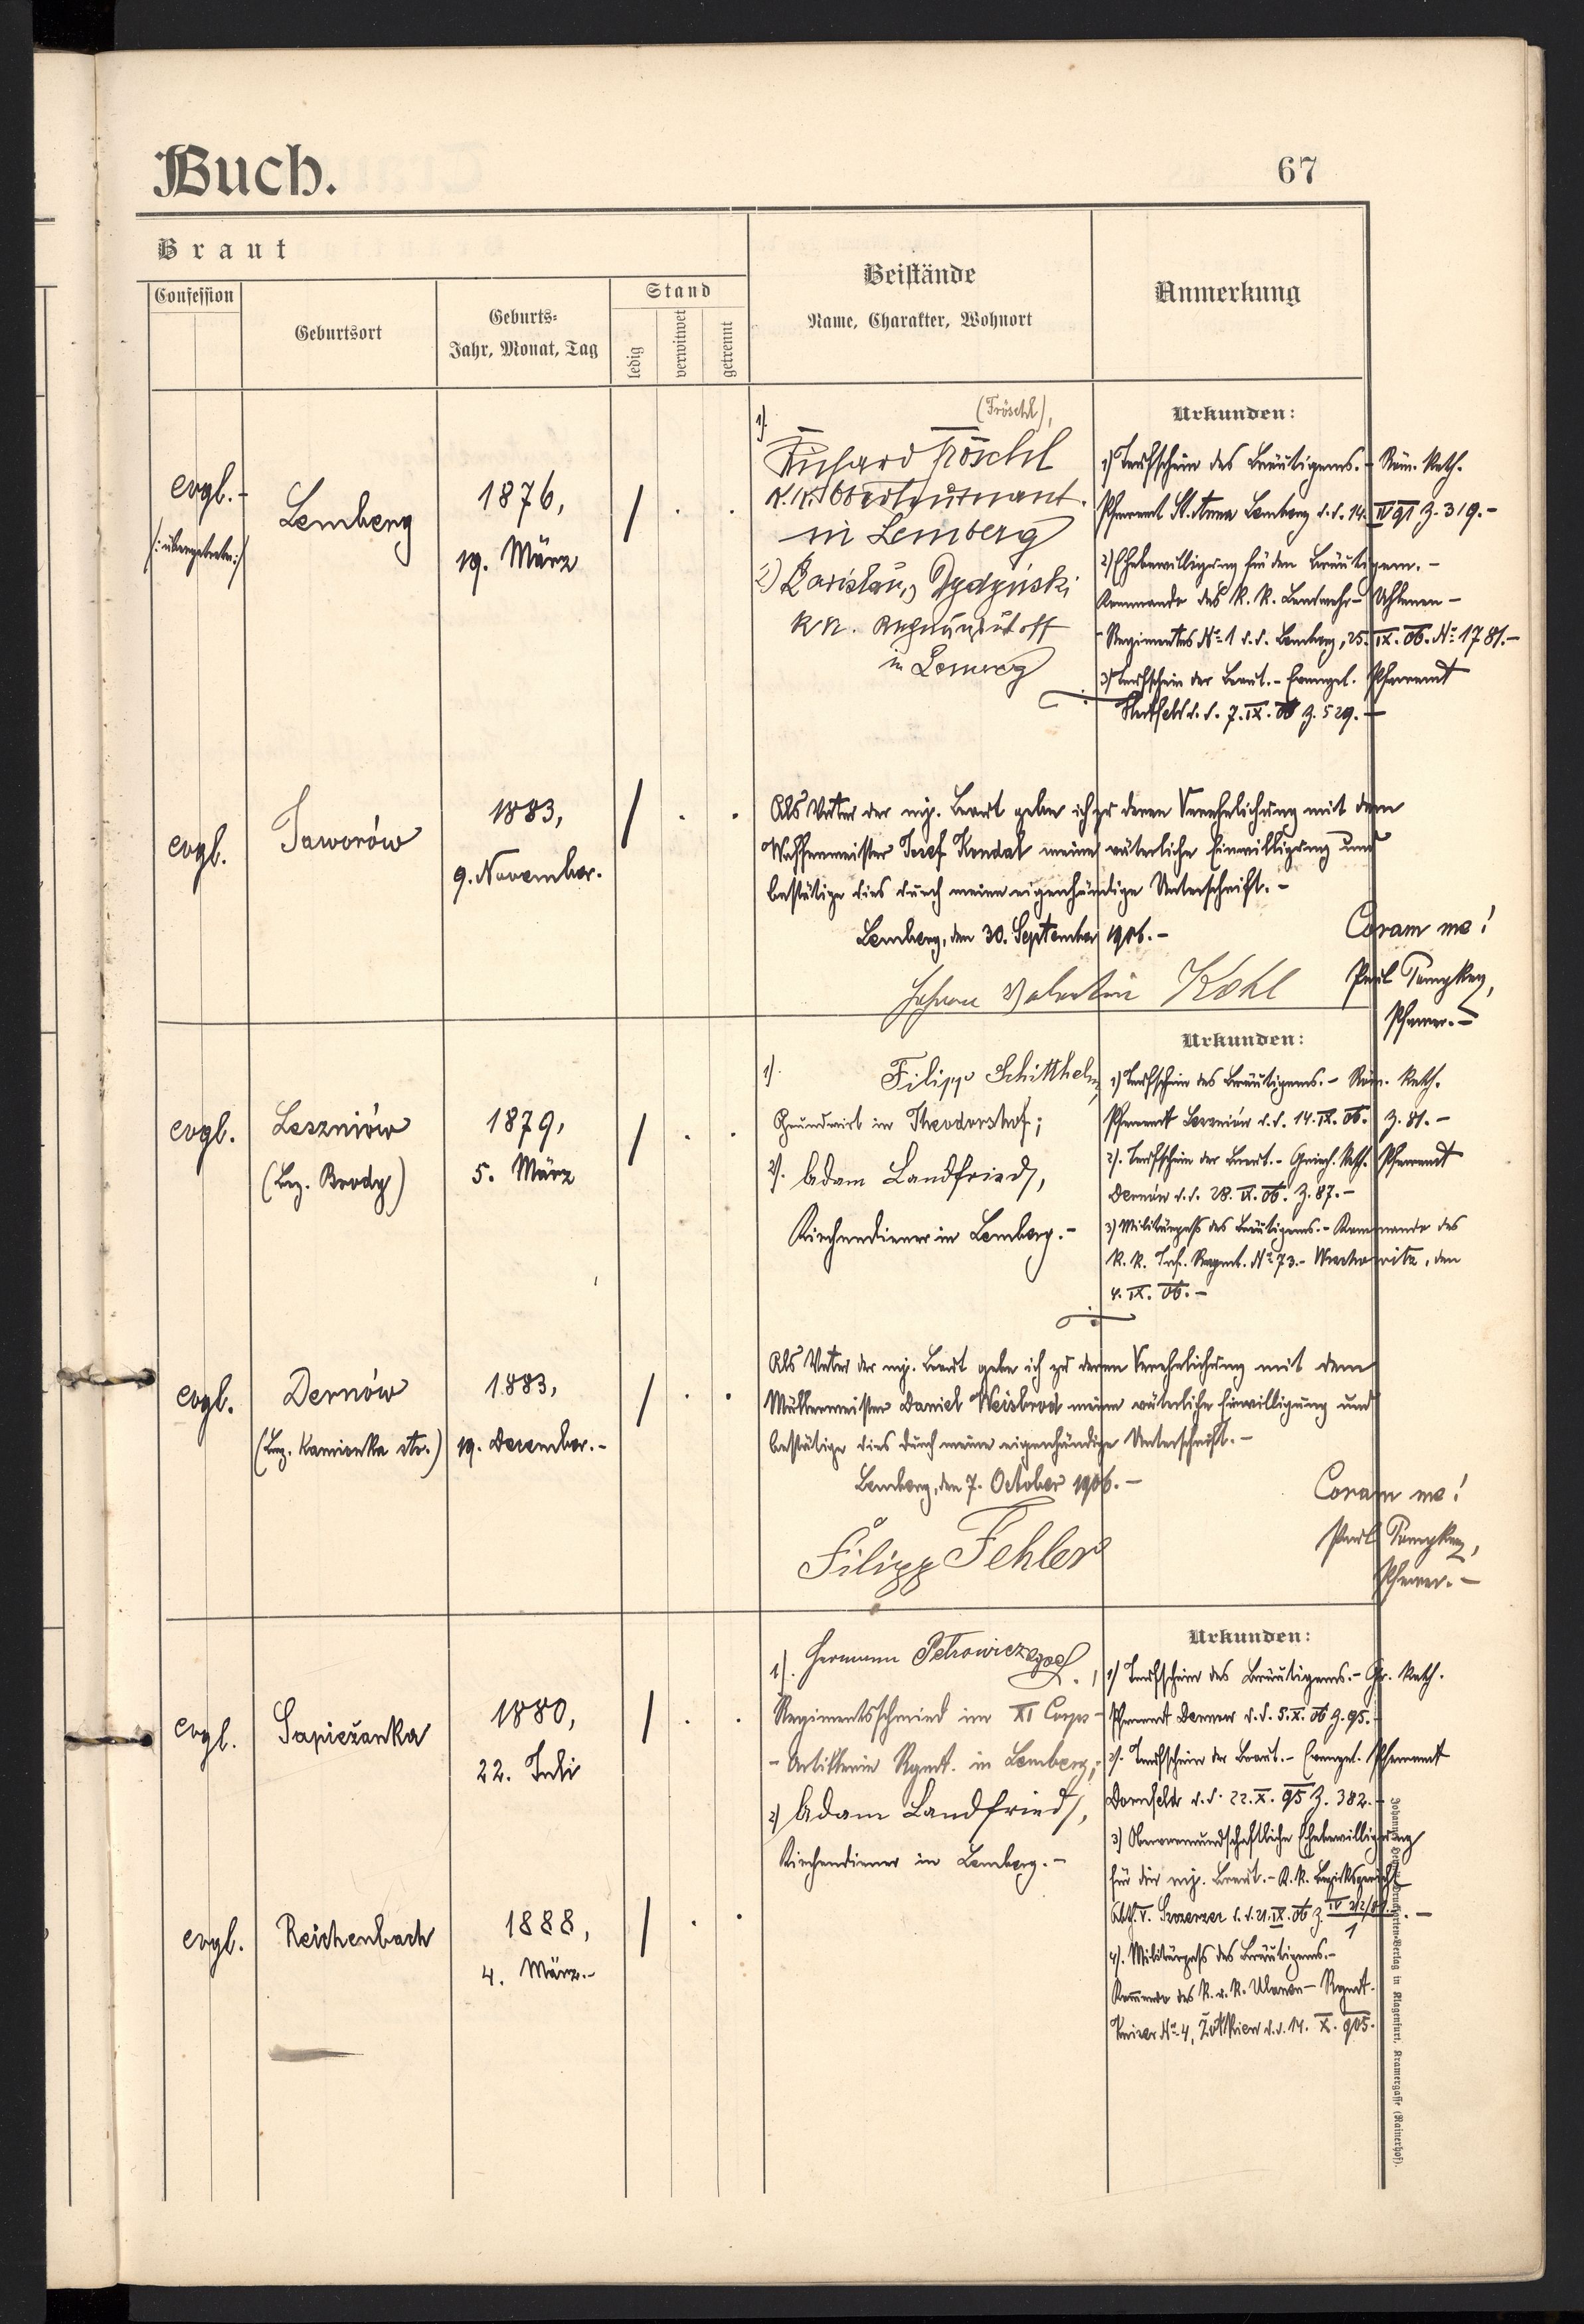 Buch.
67
Braut
Confession
Geburtsort
Geburts-
Jahr, Monat, Tag
Stand
ledig
verwitwet
getrennt
Beistände
Name, Charakter, Wohnort
Anmerkung
evgl.-
/: übergetreten :/
Lemberg
1876,
19. März
1).
(Fröschl),
Richard Fröschl
k.k. Oberleutnant
in Lemberg
2) Dydyński
in Lemberg
Urkunden:
1) Taufschein des Bräutigams. - Röm. Kath.
Pfarramt St. Anna Lemberg d.d. 14. IV 91 Z. 319.-
2) Ehebewilligung für den Bräutigam. -
Kommando des k. k. Landwehr- Uhlanen-
- Regimentes No 1 d.d. Lemberg, 25. IX. 06. No 1781.-
3) Taufschein der Braut. - Evangel. Pfarramt
d.d. 7. IX. 06 Z. 529. -
evgl.
Jaworów
1883,
9. November.
Als Vater der mj. Braut gebe ich zu deren Verehelichung mit dem
Waffenmeister Josef Kondat meine väterliche Einwilligung und
bestätige dies durch meine eigenhändige Unterschrift. -
Lemberg, den 30. September 1906. -
Johann Valentin Kohl
Coram me!
Paul
Pfarrer. -
evgl.
Leszniów
(Bez. Brody)
1879,
5. März
1).
Filipp Schitthelm,
Grundwirt in Theodorshof;
2). Adam Landfried,
Kirchendiener in Lemberg. -
Urkunden:
1) Taufschein des Bräutigams. - Röm. Kath.
Pfarramt d.d. 14. IX. 06. Z. 81. -
2). Taufschein der Braut. - Griech. Kath. Pfarramt
Dernów d.d. 28. IX. 06. Z. 87. -
3) Militärpass des Bräutigams. - Kommando des
k. k. Inf. Regmt. No 73. - den
4. IX. 06. -
evgl.
Dernów
(Bez. Kamionka str.)
1883,
19. Dezember. -
Als Vater der mj. Braut gebe ich zu deren Verehelichung mit dem
Müllermeister Daniel Weisbrod meine väterliche Einwilligung und
bestätige dies durch meine eigenhändige Unterschrift. -
Lemberg, den 7. October 1906. -
Filipp Fehler
Coram me!
Paul
Pfarrer. -
evgl.
Sapieżanka
1880,
22. Juli
1). Hermann Petrowicz
Regimentsschmied im XI Corps-
- Artillerie Rgmt. in Lemberg;
2) Adam Landfried,
Kirchendiener in Lemberg. -
Urkunden:
1) Taufschein des Bräutigams. - Gr. Kath.
Pfarramt Dernow d.d. 5. X. 06 Z. 95. -
2). Taufschein der Braut. - Evangel. Pfarramt
Dornfeld d.d. 22. X. 95 Z. 382. -
3) Obervormundschaftliche Ehebewilligung
für die mj. Braut. - K. k. Bezirksgericht
Abth. V. Szczerzec d.d. 21. IX. 06 Z.
4). Militärpass des Bräutigams. -
Kommando des k. u. k. Ulanen- Rgmt.
Kaiser No 4, Żółkiew d.d. 14. X. 905.
evgl.
Reichenbach
1888,
4. März. -